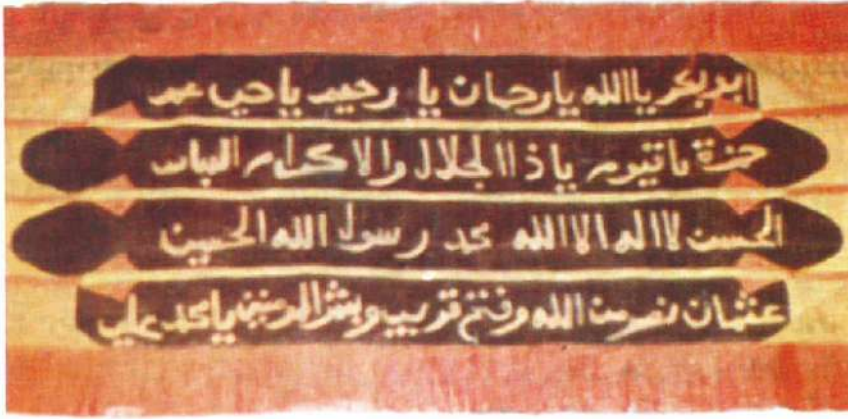 ابوبكر ياالله يارحمان يا رحيم ياحي عمر
حمزة ياقيوم ياذاالجلال والاكرام العباس
الحسن لااله الاالله محمد رسول الله الحسين
عثمان نصر من الله وفتح قريب وبشر المؤمنين يامحمد علي